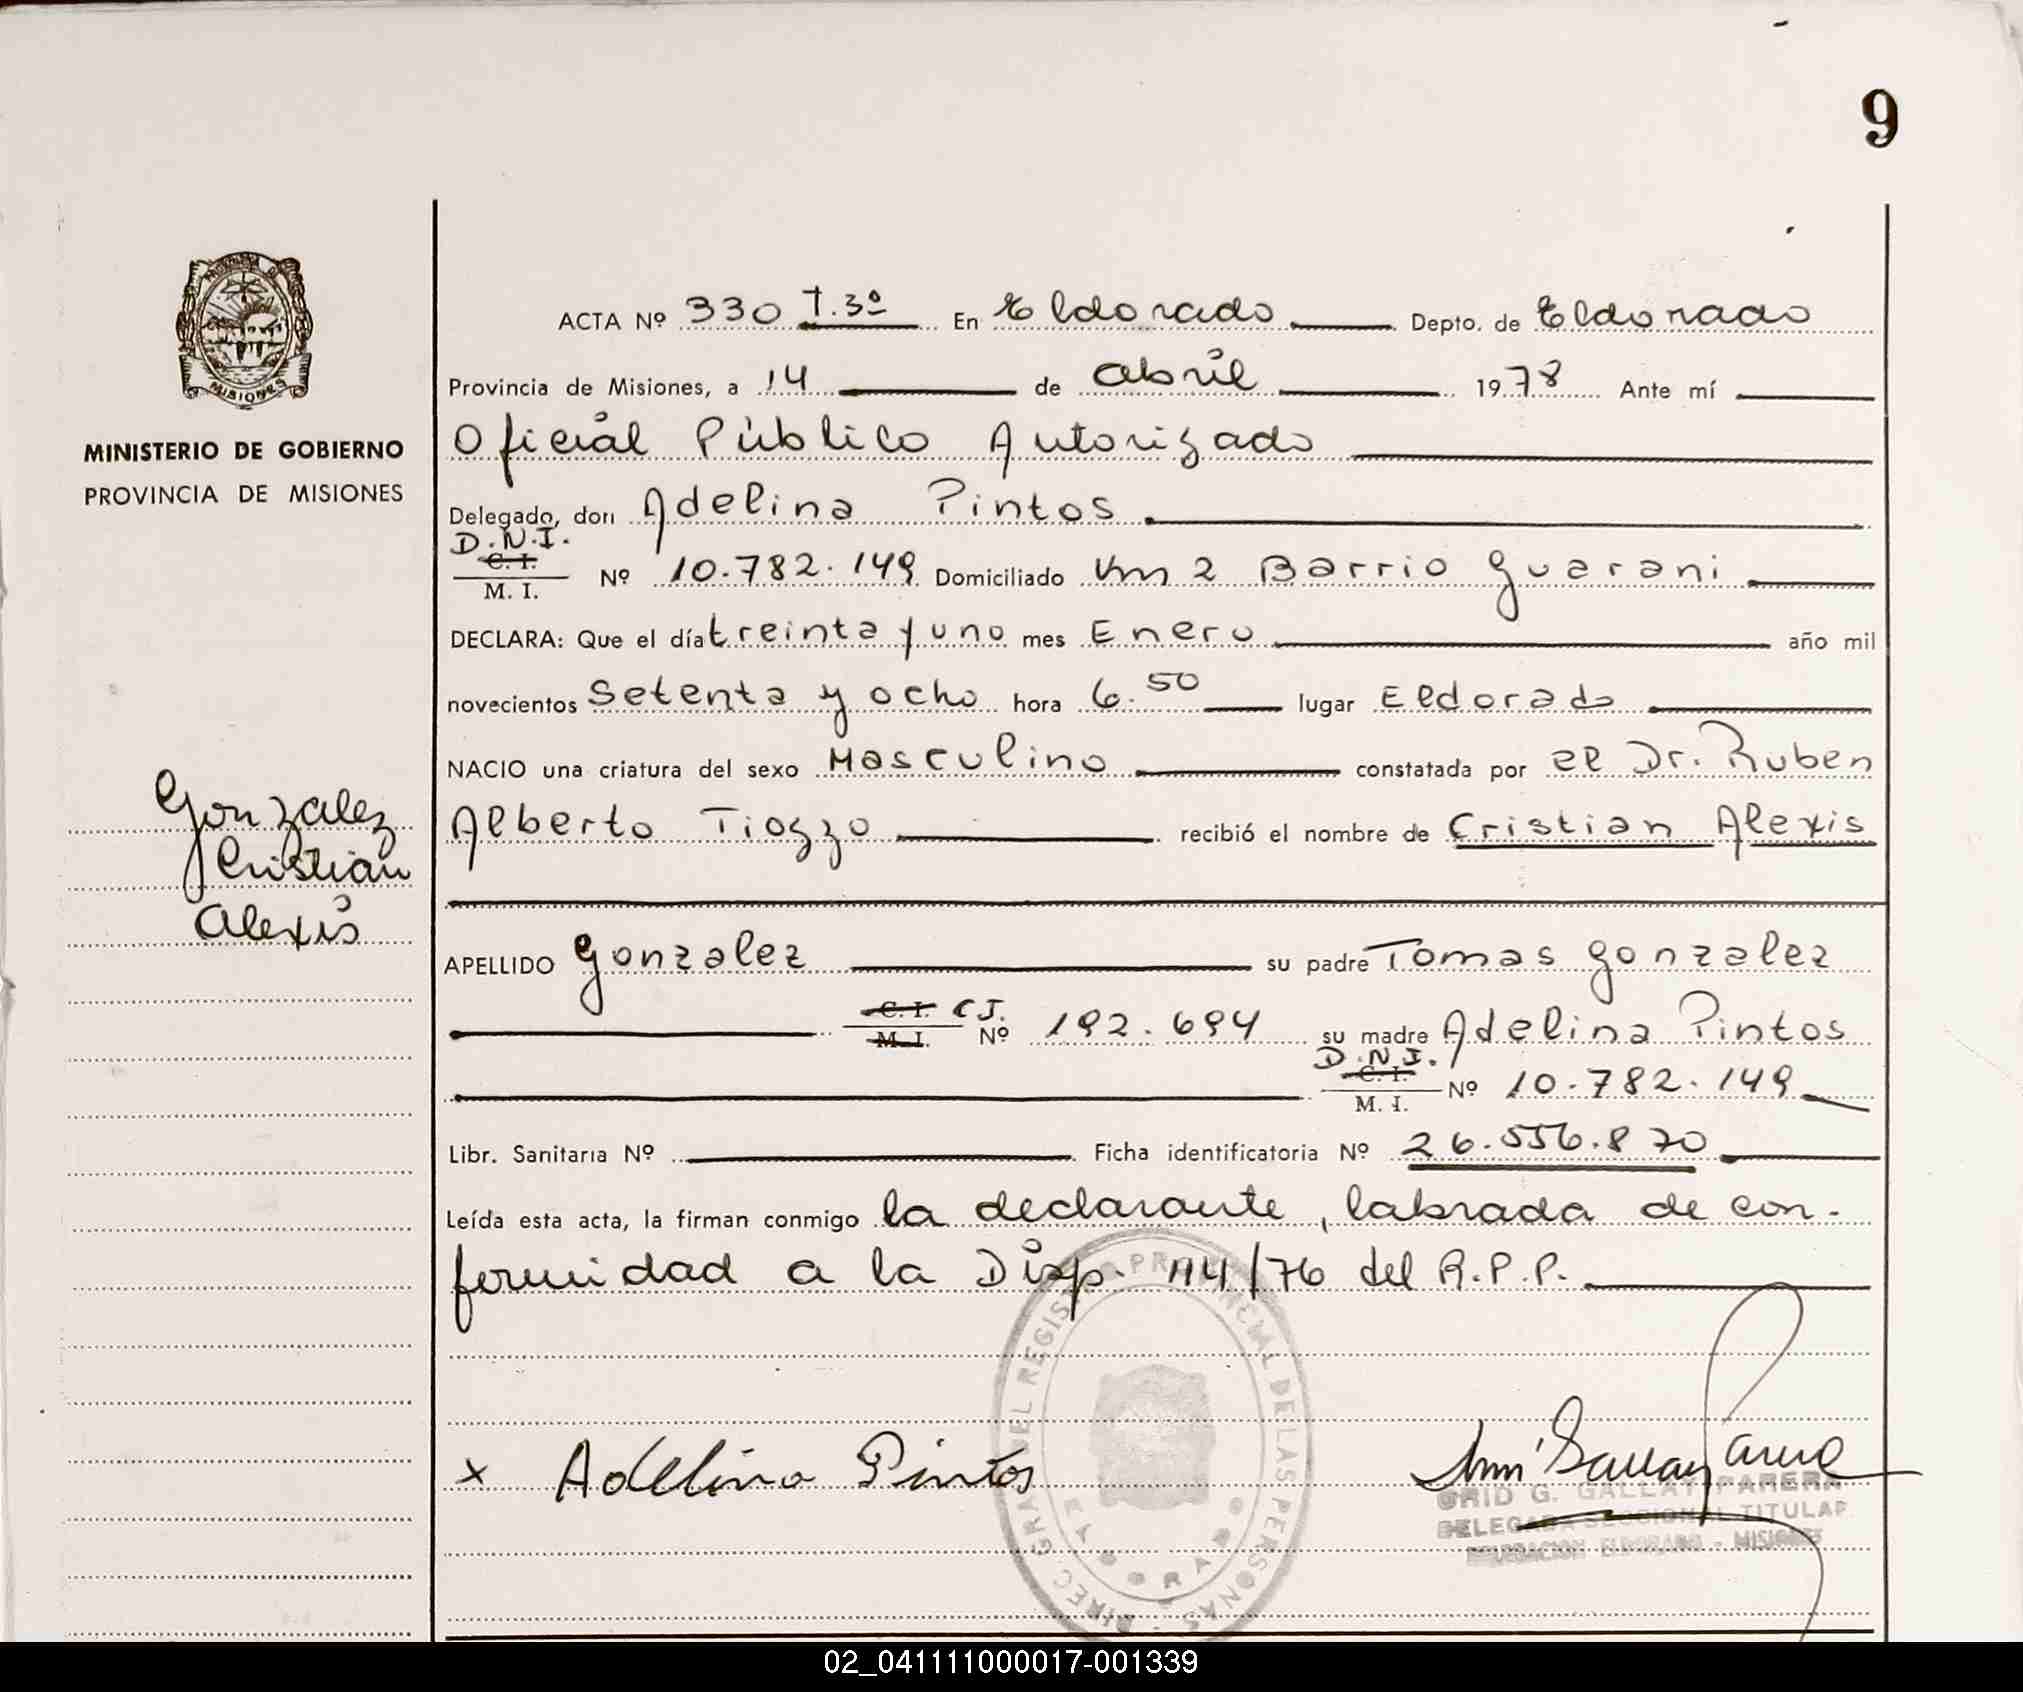 9
ACTA Nº 330 T.3º En Eldorado Depto. de Eldorado
Provincia de Misiones, a 14 de abril 1978 Ante mí
MINISTERIO DE GOBIERNO
PROVINCIA DE MISIONES
Oficial Público Autorizado
Delegado, don Adelina Pintos
D.N.I.
C. I.
M. I.
Nº 10.782.149 Domiciliado Km 2 Barrio Guarani
DECLARA: Que el día treinta y uno mes Enero año mil
novecientos setenta y ocho hora 6.50 lugar Eldorado
NACIO una criatura del sexo Masculino constatada por el Dr. Ruben
Alberto Tiozzo recibió el nombre de Cristian Alexis
Gonzalez
Cristian
Alexis
APELLIDO Gonzalez su padre Tomas Gonzalez
C. I. C.I.
M. I. Nº 192.694 su madre Adelina Pintos
D.N.I.
C. I.
M. I.
Nº 10.782.149
Libr. Sanitaria Nº Ficha identificatoria Nº 26.556.870
Leída esta acta, la firman conmigo la declarante, labrada de con-
formidad a la Disp. 114/76 del R.P.P.
x Adelina Pintos
GRID G. GALLAY PARERA
DELEGADA SECCIONAL TITULAR
DELEGACION ELDORADO - MISIONES
DIREC GRAL DEL REGISTRO PROVINCIAL DE LAS PERSONAS
MISIONES
02_041111000017-001339